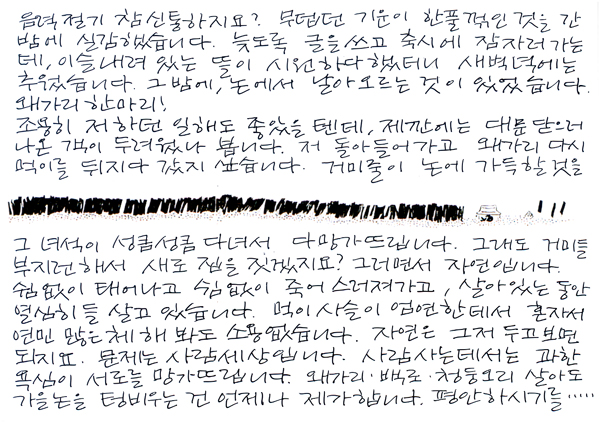 음력절기 참 신통하지요? 무덥던 기운이 한풀 꺾인 것을 간
밤에 실감했습니다. 늦도록 글을 쓰고 축시에 잠자러 가는
데, 이슬 내려 있는 뜰이 시원하다 했더니 새벽녘에는
추웠습니다. 그 밤에, 논에서 날아오르는 것이 있었습니다.
왜가리 한 마리!
조용히 저 하던 일 해도 좋았을 텐데, 제깐에는 대문 닫으러
나온 객이 두려웠나 봅니다. 저 돌아 들어가고 왜가리 다시
먹이를 뒤지다 갔지 싶습니다. 거미줄이 논에 가득할 것을
그 녀석이 성큼성큼 다녀서 다 망가뜨립니다. 그래도 거미들
부지런해서 새로 집을 짓겠지요? 그러면서 자연입니다.
쉼없이 태어나고 쉼없이 죽어 스러져가고, 살아있는 동안
열심히들 살고 있습니다. 먹이사슬이 엄연한데서 혼자서
연민 많은 체 해 봐도 소용없습니다. 자연은 그저 두고 보면
되지요. 문제는 사람세상입니다. 사람 사는 데서는 과한
욕심이 서로를 망가뜨립니다. 왜가리·백로·청둥오리 살아도
가을논을 텅 비우는 건 언제나 제가 합니다. 평안하시기를·····